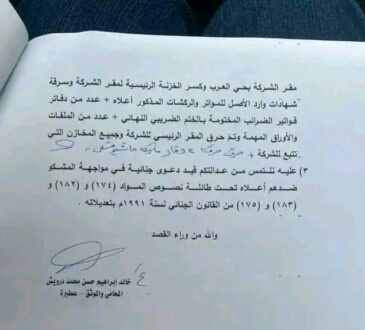 مقر الشركة بحي العرب وكسر الخزنة الرئيسية لمقر الشركة وسرقة
شهادات وارد الأصل للمواتر والركشات المذكور أعلاه + عدد من دفاتر
فواتير الضرائب المختومة بالختم الضريبي النهائي + عدد من الملفات
والأوراق المهمة وتم حرق المقر الرئيسي للشركة وجميع المخازن التي
تتبع للشركة +
٣) عليه نلتمس من عدالتكم قيد دعوى جنائية في مواجهة المشكو
ضدهم أعلاه تحت طائلة نصوص المواد (١٧٤) و (١٨٢) و
(١٨٣) و (١٧٥) من القانون الجنائي لسنة ١٩٩١م بتعديلاته .
والله من وراء القصد
ع/
خالد إبراهيم حسن محمد درويش
المحامي والموثق – عطبرة